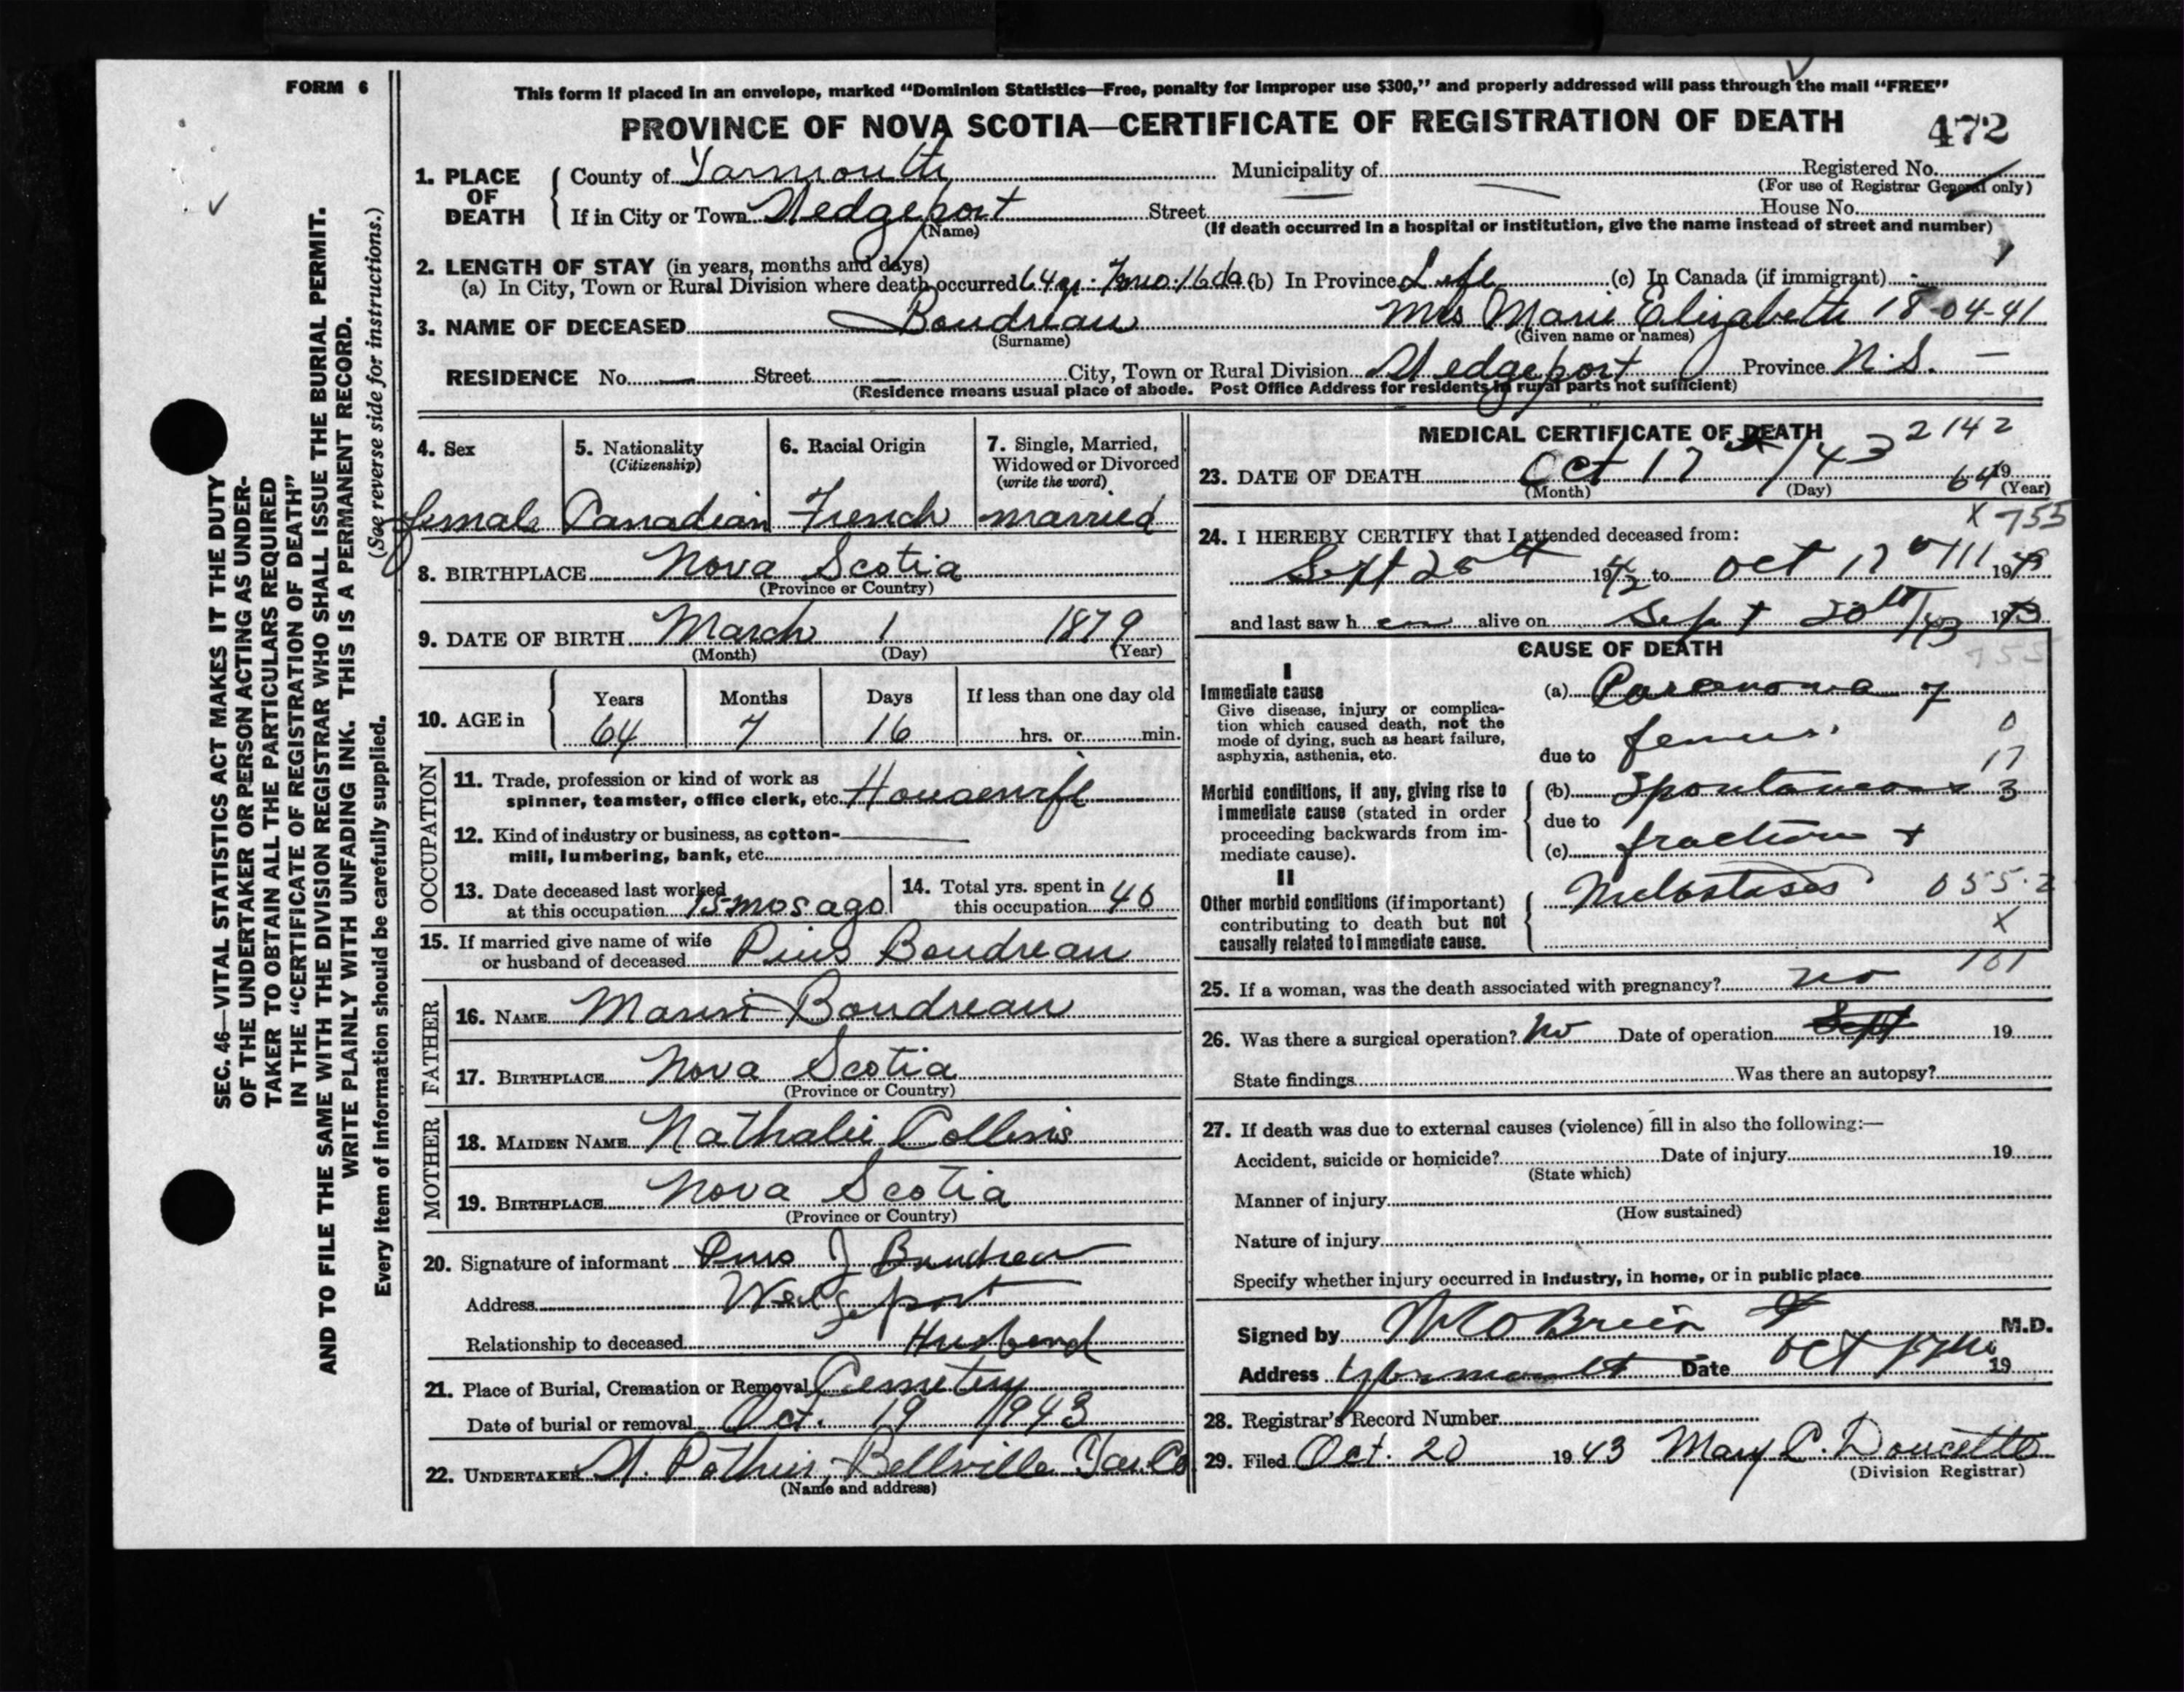 FORM 6
This form if placed in an envelope, marked "Dominion Statistics—Free, penalty for improper use $300," and properly addressed will pass through the mail "FREE"
PROVINCE OF NOVA SCOTIA—CERTIFICATE OF REGISTRATION OF DEATH
472
1. PLACE OF DEATH
County of Yarmouth Municipality of — Registered No.
(For use of Registrar General only)
If in City or Town Wedgeport Street — House No.
(Name) (If death occurred in a hospital or institution, give the name instead of street and number)
2. LENGTH OF STAY (in years, months and days)
(a) In City, Town or Rural Division where death occurred 64 yr. 7 mo. 16 da (b) In Province Life (c) In Canada (if immigrant) -
3. NAME OF DECEASED Boudreau Mrs Marie Elizabeth 18-04-41
(Surname) (Given name or names)
RESIDENCE No. — Street — City, Town or Rural Division Wedgeport Province N.S. —
(Residence means usual place of abode. Post Office Address for residents in rural parts not sufficient)
4. Sex female
5. Nationality (Citizenship) Canadian
6. Racial Origin French
7. Single, Married, Widowed or Divorced (write the word) married
8. BIRTHPLACE Nova Scotia
(Province or Country)
9. DATE OF BIRTH March 1 1879
(Month) (Day) (Year)
10. AGE in Years Months Days If less than one day old
64 7 16 hrs. or min.
OCCUPATION
11. Trade, profession or kind of work as
spinner, teamster, office clerk, etc. Housewife
12. Kind of industry or business, as cotton-
mill, lumbering, bank, etc.
13. Date deceased last worked
at this occupation 15 mos ago
14. Total yrs. spent in
this occupation 40
15. If married give name of wife
or husband of deceased Pius Boudreau
FATHER
16. NAME Boudreau
17. BIRTHPLACE Nova Scotia
(Province or Country)
MOTHER
18. MAIDEN NAME Nathalie
19. BIRTHPLACE Nova Scotia
(Province or Country)
20. Signature of informant Pius J Boudreau
Address Wedgeport
Relationship to deceased Husband
21. Place of Burial, Cremation or Removal Cemetery
Date of burial or removal Oct. 19 1943
22. UNDERTAKER Pothier, Bellville Yar. Co
(Name and address)
MEDICAL CERTIFICATE OF DEATH 2142
23. DATE OF DEATH Oct 17th /43 64 19
(Month) (Day) (Year)
X 755
24. I HEREBY CERTIFY that I attended deceased from:
Sept 1942 to Oct 17 1943
and last saw h er alive on Sept 20th/43 1943
CAUSE OF DEATH
755
I
Immediate cause
Give disease, injury or complica-
tion which caused death, not the
mode of dying, such as heart failure,
asphyxia, asthenia, etc.
(a) 7
due to femur. 0
17
Morbid conditions, if any, giving rise to
immediate cause (stated in order
proceeding backwards from im-
mediate cause).
(b) Spontaneous 3
due to
(c) fracture +
II
Other morbid conditions (if important)
contributing to death but not
causally related to immediate cause.
Metastases 055.2
X
101
25. If a woman, was the death associated with pregnancy? no
26. Was there a surgical operation? no Date of operation Sept 19
State findings Was there an autopsy?
27. If death was due to external causes (violence) fill in also the following:—
Accident, suicide or homicide? Date of injury 19
(State which)
Manner of injury
(How sustained)
Nature of injury
Specify whether injury occurred in industry, in home, or in public place
Signed by O'Brien M.D.
Address Yarmouth Date Oct 17th 19
28. Registrar's Record Number
29. Filed Oct. 20 1943 Mary C. Doucette
(Division Registrar)
SEC. 46—VITAL STATISTICS ACT MAKES IT THE DUTY
OF THE UNDERTAKER OR PERSON ACTING AS UNDER-
TAKER TO OBTAIN ALL THE PARTICULARS REQUIRED
IN THE "CERTIFICATE OF REGISTRATION OF DEATH"
AND TO FILE THE SAME WITH THE DIVISION REGISTRAR WHO SHALL ISSUE THE BURIAL PERMIT.
WRITE PLAINLY WITH UNFADING INK. THIS IS A PERMANENT RECORD.
(See reverse side for instructions.)
Every item of information should be carefully supplied.